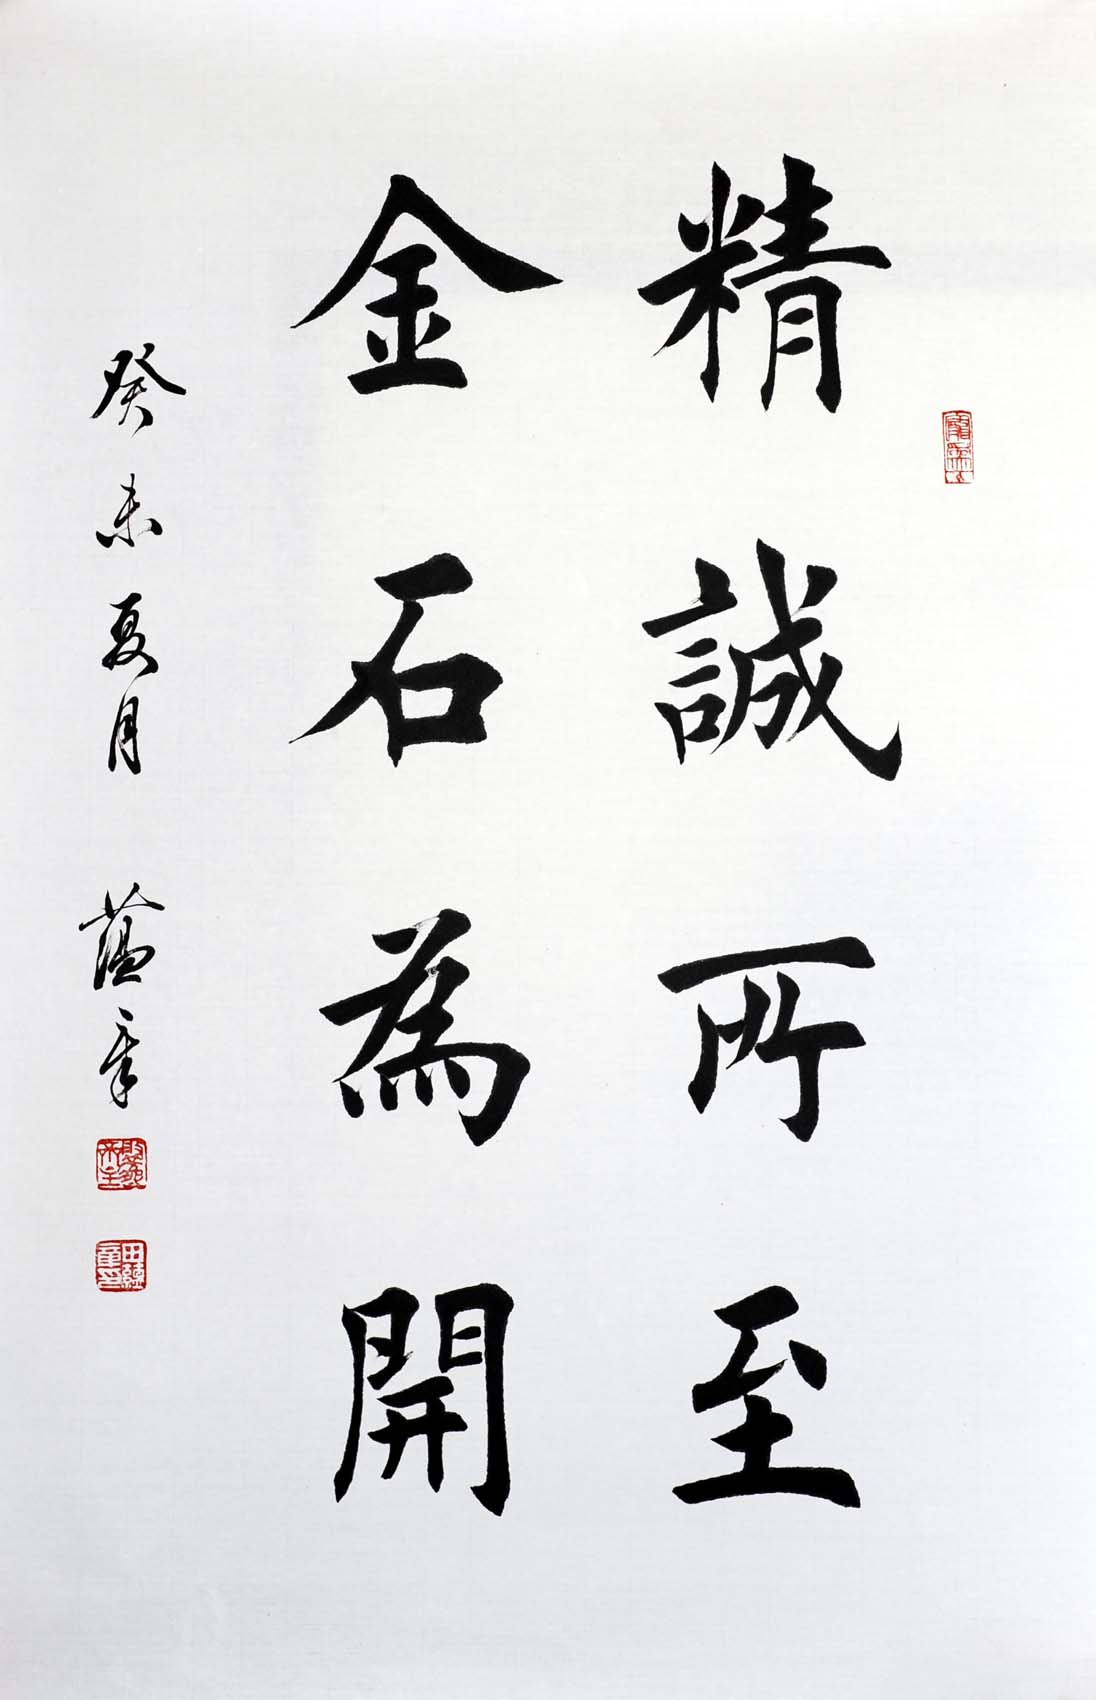 精誠所至
金石為開
癸未夏月 蘊章